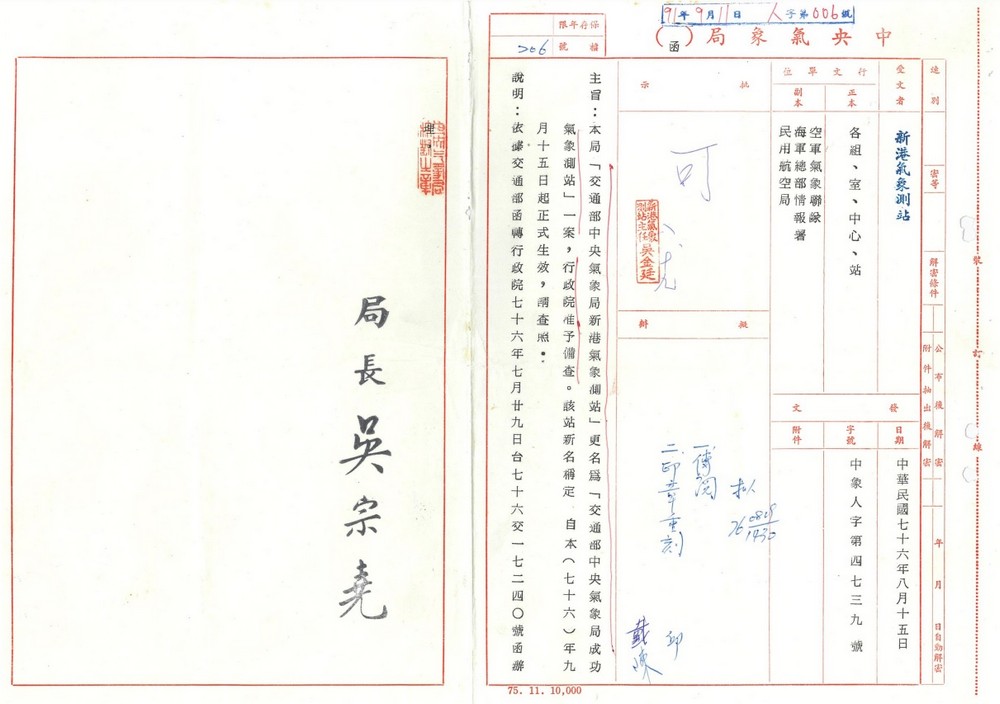 91年9月11日 人字第006號
保存年限
檔號
206
中央氣象局（函）
速別
密等
解密條件
公布後解密
附件抽出後解密
年 月 日自動解密
裝
訂
線
受文者
新港氣象測站
行文單位
正本
各組、室、中心、站
副本
空軍氣象聯隊
海軍總部情報署
民用航空局
發文
日期
中華民國七十六年八月十五日
字號
中象人字第四七三九號
附件
批示
可
新港氣象測站主任 吳金廷
擬辦
擬
76 0819 1430
一、傳閱
二、印章重刻
邱
戴
陳
主旨：本局「交通部中央氣象局新港氣象測站」更名為「交通部中央氣象局成功
氣象測站」一案，行政院准予備查。該站新名稱定 自本（七十六）年九
月十五日起正式生效，請查照：
說明：依據交通部函轉行政院七十六年七月廿九日台七十六交一七二四〇號函辦
理，
局長 吳宗堯
75. 11. 10,000